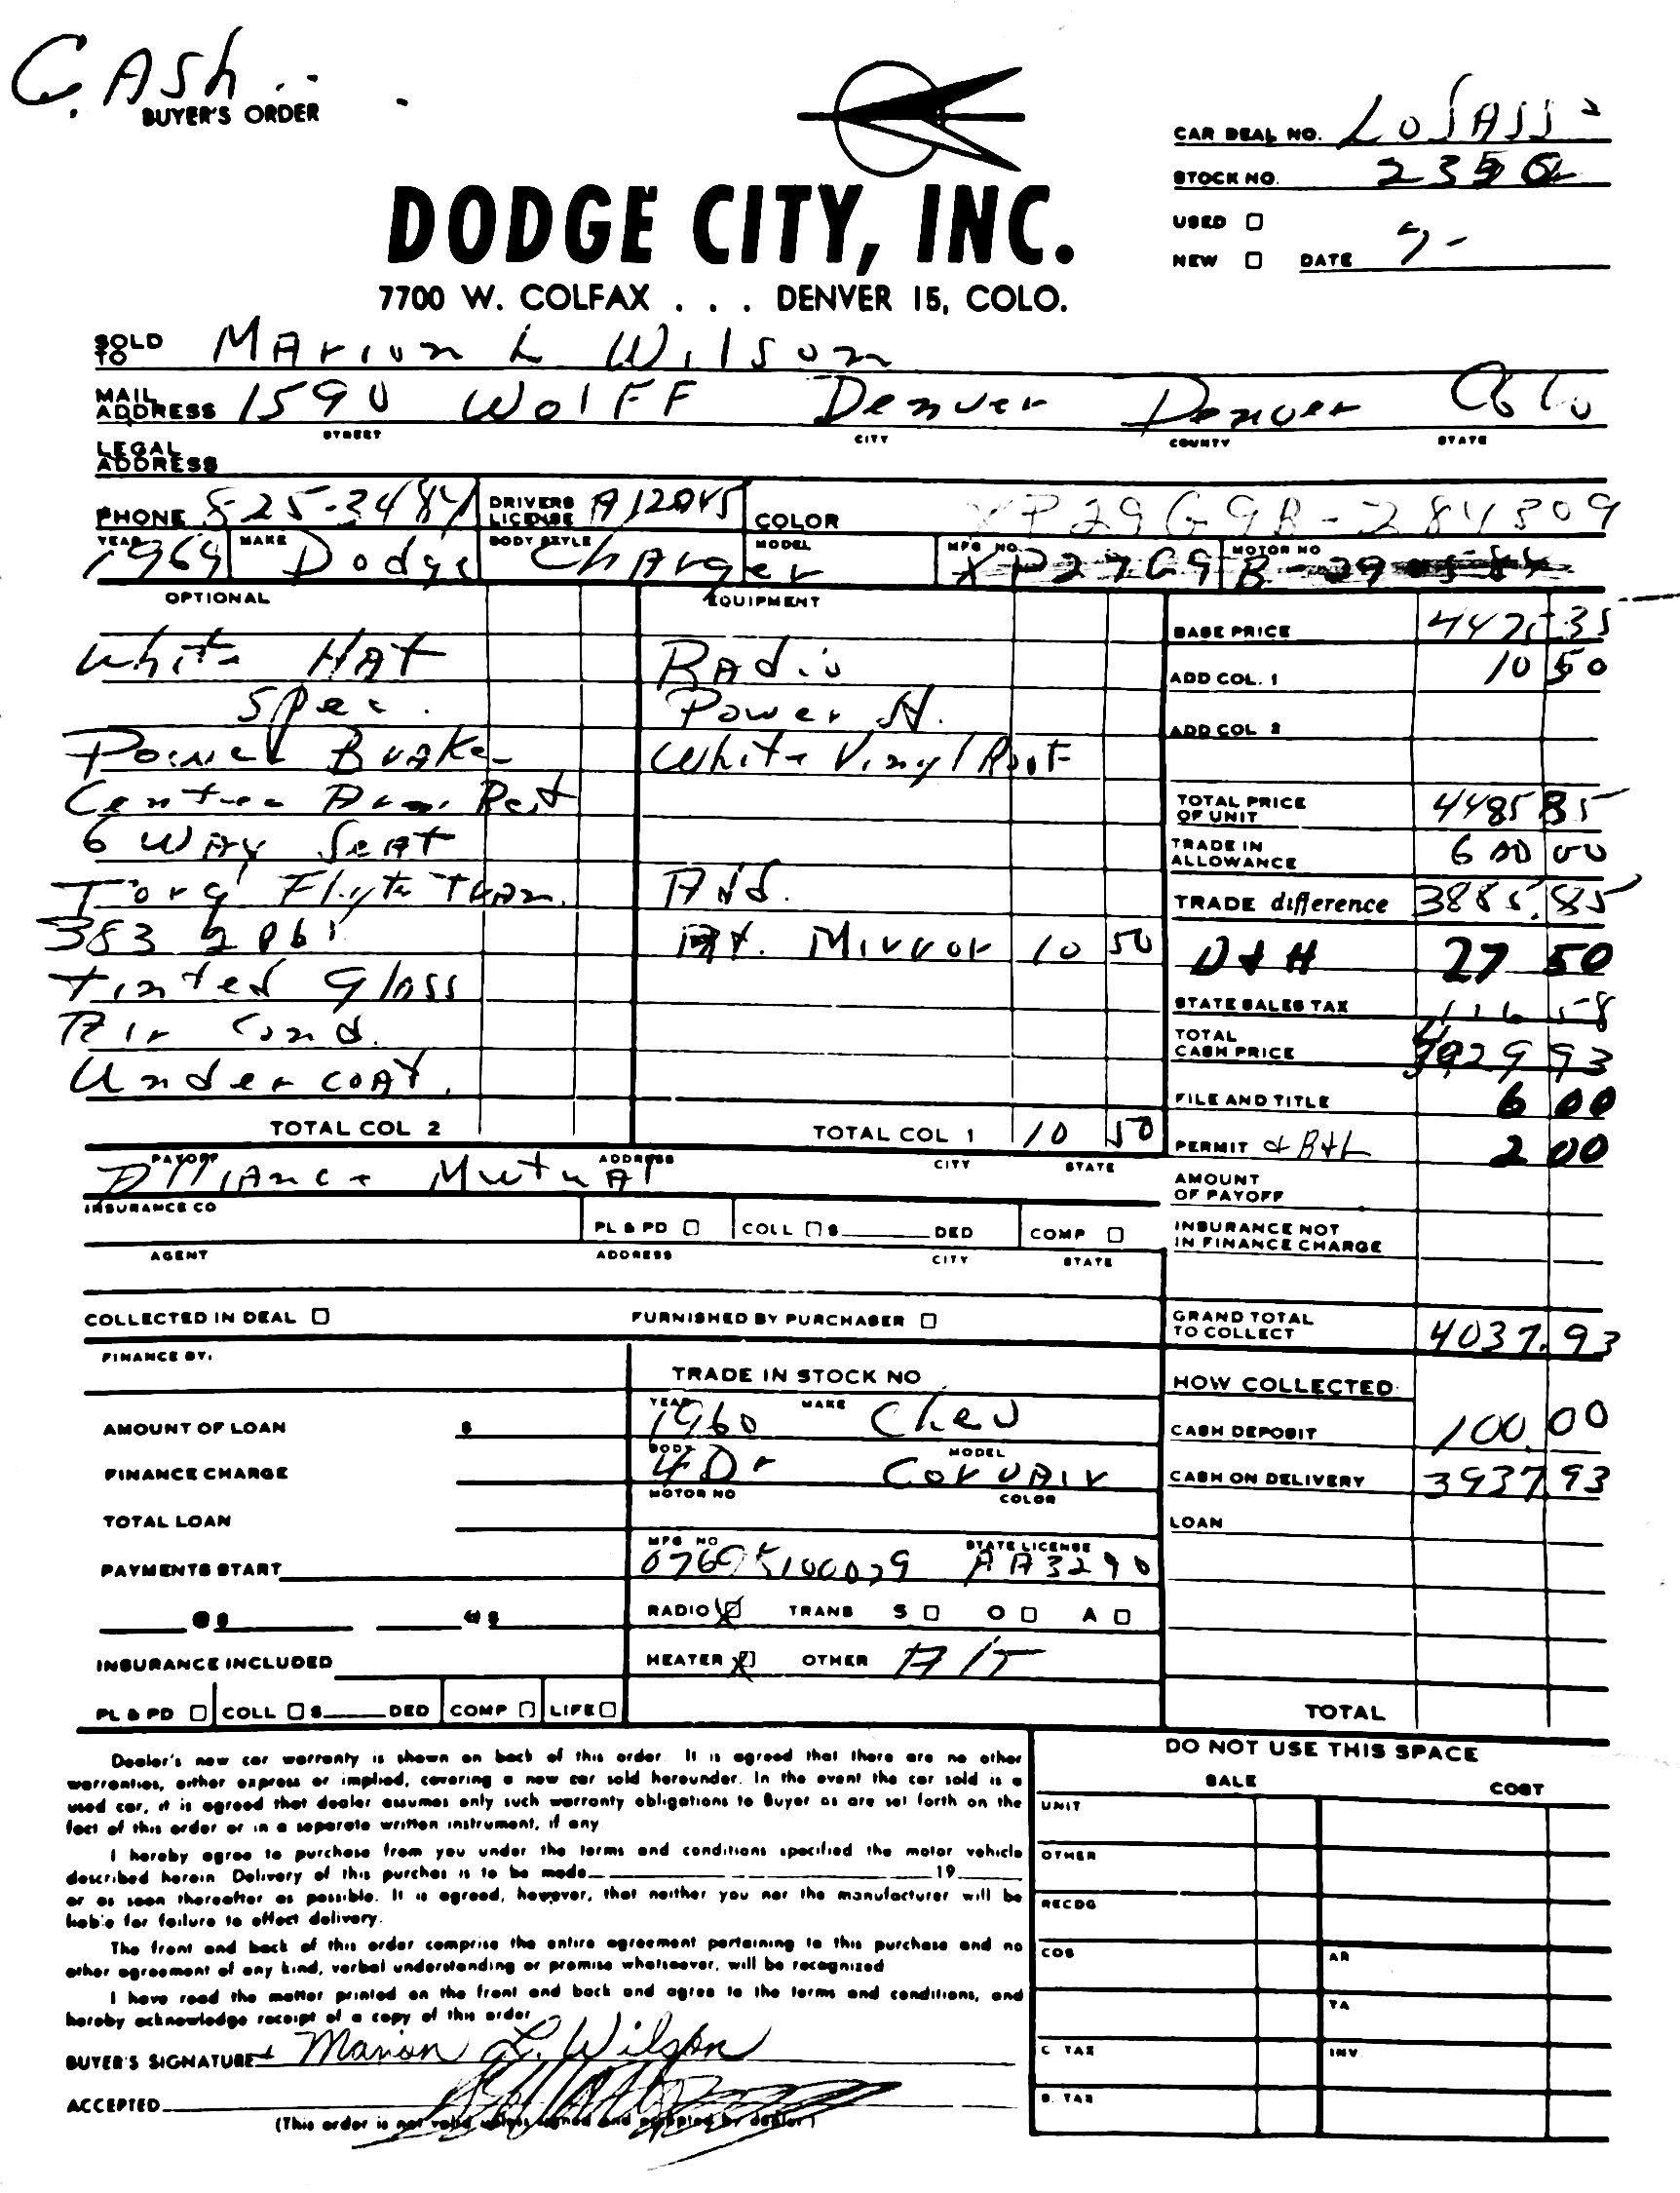 CASH
BUYER'S ORDER
CAR DEAL NO. LoSASSo
STOCK NO.
USED ☐
NEW ☐ DATE 7-
DODGE CITY, INC.
7700 W. COLFAX . . . DENVER 15, COLO.
SOLD TO Marion L Wilson
MAIL ADDRESS 1590 Wolff Denver Denver Colo
STREET CITY COUNTY STATE
LEGAL ADDRESS
PHONE 825-3484 DRIVERS LICENSE COLOR XP29G9B-284809
YEAR 1969 MAKE Dodge BODY STYLE Charger MODEL MFG NO. XP27G9 MOTOR NO
OPTIONAL EQUIPMENT
BASE PRICE 4475 35
White HAT Radio ADD COL. 1 10 50
Spec. Power St. ADD COL 2
Power Brake White Vinyl Roof
Center Arm Rest TOTAL PRICE OF UNIT 4485 85
6 Way Seat TRADE IN ALLOWANCE 600 00
Torq Flyte Tran. Add. TRADE difference 3885.85
383 2 Bbl Rt. Mirror 10 50 D & H 27 50
Tinted Glass STATE SALES TAX 116 58
Air Cond. TOTAL CASH PRICE 4029 93
Undercoat. FILE AND TITLE 6 00
TOTAL COL 2 TOTAL COL 1 10 50 PERMIT & B+L 2 00
PAYOFF ADDRESS CITY STATE
Alliance Mutual
AMOUNT OF PAYOFF
INSURANCE CO PL & PD ☐ COLL ☐ $ DED COMP ☐ INSURANCE NOT IN FINANCE CHARGE
AGENT ADDRESS CITY STATE
COLLECTED IN DEAL ☐ FURNISHED BY PURCHASER ☐ GRAND TOTAL TO COLLECT 4037.93
FINANCE BY: TRADE IN STOCK NO HOW COLLECTED:
AMOUNT OF LOAN $ YEAR 1960 MAKE Chev CASH DEPOSIT 100.00
FINANCE CHARGE BODY 4Dr MODEL Corvair CASH ON DELIVERY 3937.93
TOTAL LOAN MOTOR NO COLOR LOAN
PAYMENTS START MFG NO STATE LICENSE AA3290
@ $ @ $ RADIO ☒ TRANS S ☐ O ☐ A ☐
INSURANCE INCLUDED HEATER ☒ OTHER A/T
PL & PD ☐ COLL ☐ $ DED COMP ☐ LIFE ☐ TOTAL
Dealer's new car warranty is shown on back of this order. It is agreed that there are no other
warranties, either express or implied, covering a new car sold hereunder. In the event the car sold is a
used car, it is agreed that dealer assumes only such warranty obligations to Buyer as are set forth on the
fact of this order or in a separate written instrument, if any
I hereby agree to purchase from you under the terms and conditions specified the motor vehicle
described herein Delivery of this purchas is to be made 19
or as soon thereafter as possible. It is agreed, however, that neither you nor the manufacturer will be
liable for failure to effect delivery.
The front and back of this order comprise the entire agreement pertaining to this purchase and no
other agreement of any kind, verbal understanding or promise whatsoever, will be recognized
I have read the matter printed on the front and back and agree to the terms and conditions, and
hereby acknowledge receipt of a copy of this order
BUYER'S SIGNATURE Marion L. Wilson
ACCEPTED
(This order is not valid unless signed and accepted by dealer)
DO NOT USE THIS SPACE
SALE COST
UNIT
OTHER
RECDG
COS AR
TA
C. TAX INV
B. TAX